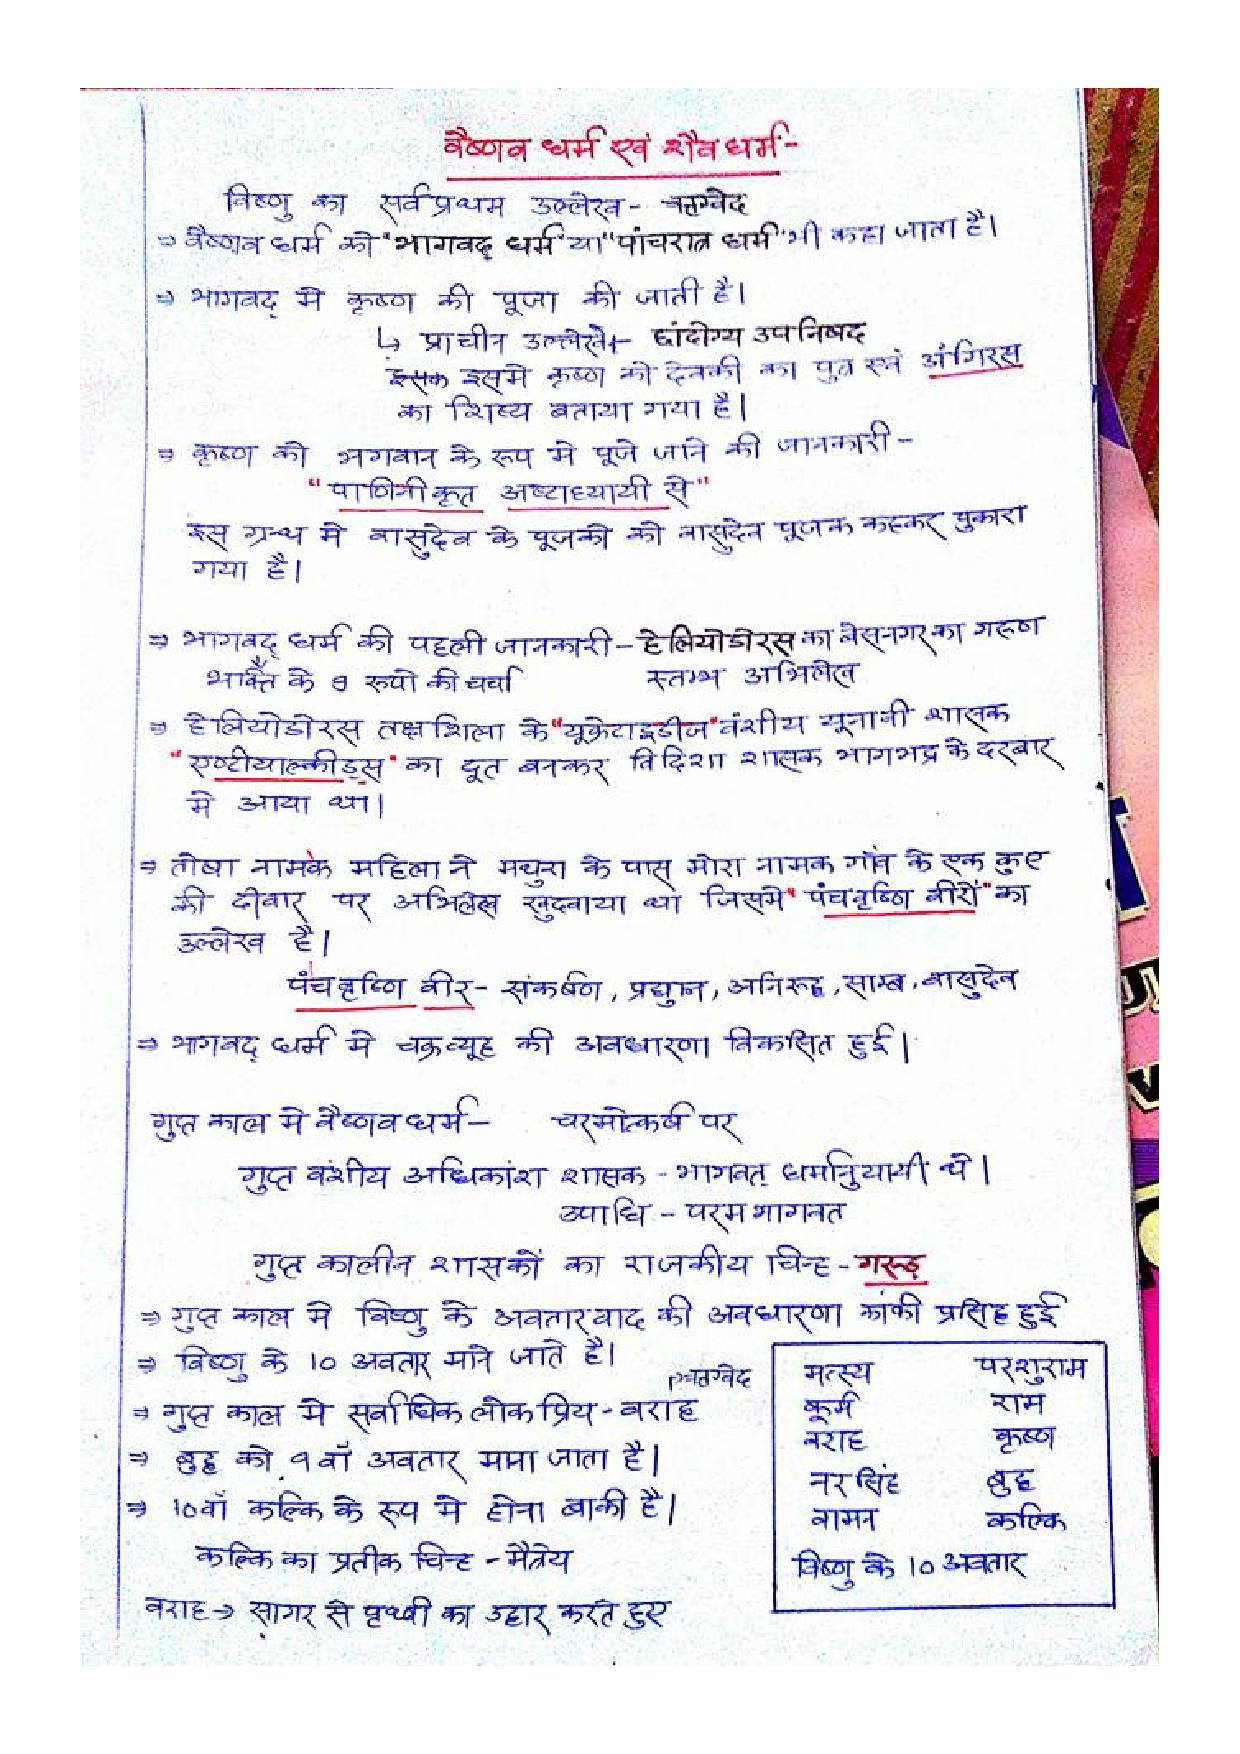 वैष्णव धर्म एवं शैव धर्म -
विष्णु का सर्वप्रथम उल्लेख - ऋग्वेद
⇒ वैष्णव धर्म को "भागवद् धर्म" या "पांचरात्र धर्म" भी कहा जाता है।
⇒ भागवद् मे कृष्ण की पूजा की जाती है।
↳ प्राचीन उल्लेख - छांदोग्य उपनिषद
इसक इसमे कृष्ण को देवकी का पुत्र एवं अंगिरस
का शिष्य बताया गया है।
⇒ कृष्ण को भगवान के रूप मे पूजे जाने की जानकारी -
"पाणिनीकृत अष्टाध्यायी से"
इस ग्रन्थ मे वासुदेव के पूजकों को वासुदेव पूजक कहकर पुकारा
गया है।
⇒ भागवद् धर्म की पहली जानकारी - हेलियोडोरस का बेसनगर का गरुण
भक्ति के 9 रूपो की चर्चा स्तम्भ अभिलेख
⇒ हेलियोडोरस तक्षशिला के "यूक्रेटाइडीज" वंशीय यूनानी शासक
"एण्टीयाल्कीड्स" का दूत बनकर विदिशा शासक भागभद्र के दरबार
मे आया था।
⇒ तोषा नामके महिला ने मथुरा के पास मोरा नामक गाँव के एक कुए
की दीवार पर अभिलेख खुदवाया था जिसमे "पंचवृष्णि वीरों" का
उल्लेख है।
पंचवृष्णि वीर - संकर्षण, प्रद्युम्न, अनिरुद्ध, साम्ब, वासुदेव
⇒ भागवद् धर्म मे चक्रव्यूह की अवधारणा विकसित हुई।
गुप्त काल मे वैष्णव धर्म - चरमोत्कर्ष पर
गुप्त वंशीय अधिकांश शासक - भागवत् धर्मानुयायी थे।
उपाधि - परम भागवत
गुप्त कालीन शासकों का राजकीय चिन्ह - गरूड़
⇒ गुप्त काल मे विष्णु के अवतारवाद की अवधारणा काफी प्रसिद्ध हुई
⇒ विष्णु के 10 अवतार माने जाते है।
ऋग्वेद
⇒ गुप्त काल मे सर्वाधिक लोकप्रिय - वराह
⇒ बुद्ध को 9वाँ अवतार माना जाता है।
⇒ 10वाँ कल्कि के रूप मे होना बाकी है।
कल्कि का प्रतीक चिन्ह - मैत्रेय
वराह → सागर से पृथ्वी का उद्दार करते हुए
मत्स्य परशुराम
कूर्म राम
वराह कृष्ण
नरसिंह बुद्ध
वामन कल्कि
विष्णु के 10 अवतार